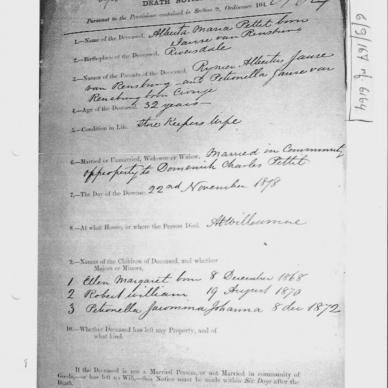 DEATH NOTICE
Pursuant to the Provisions contained in Section 9, Ordinance 104.
1.—Name of the Deceased, Alberta Maria Pettet born
Janse van Rensburg
2.—Birthplace of the Deceased, Riversdale
3.—Names of the Parents of the Deceased, Rynier Albertus Janse
van Rensburg and Petronella Janse van
Rensburg born Cronje
4.—Age of the Deceased, 32 years
5.—Condition in Life, Store Keepers Wife
6.—Married or Unmarried, Widower or Widow, Married in Community
of property to Domenick Charles Pettet
7.—The Day of the Decease, 22nd November 1878
8.—At what House, or where the Person Died, At
9.—Names of the Children of Deceased, and whether
Majors or Minors,
1 Ellen Margaret born 8 December 1868
2 Robert William 19 August 1870
3 Petronella Johanna 8 dec 1872
10.—Whether Deceased has left any Property, and of
what kind.
If the Deceased is not a Married Person, or not Married in community of
Goods,—or has left no Will,—this Notice must be made within Six Days after the
Death.